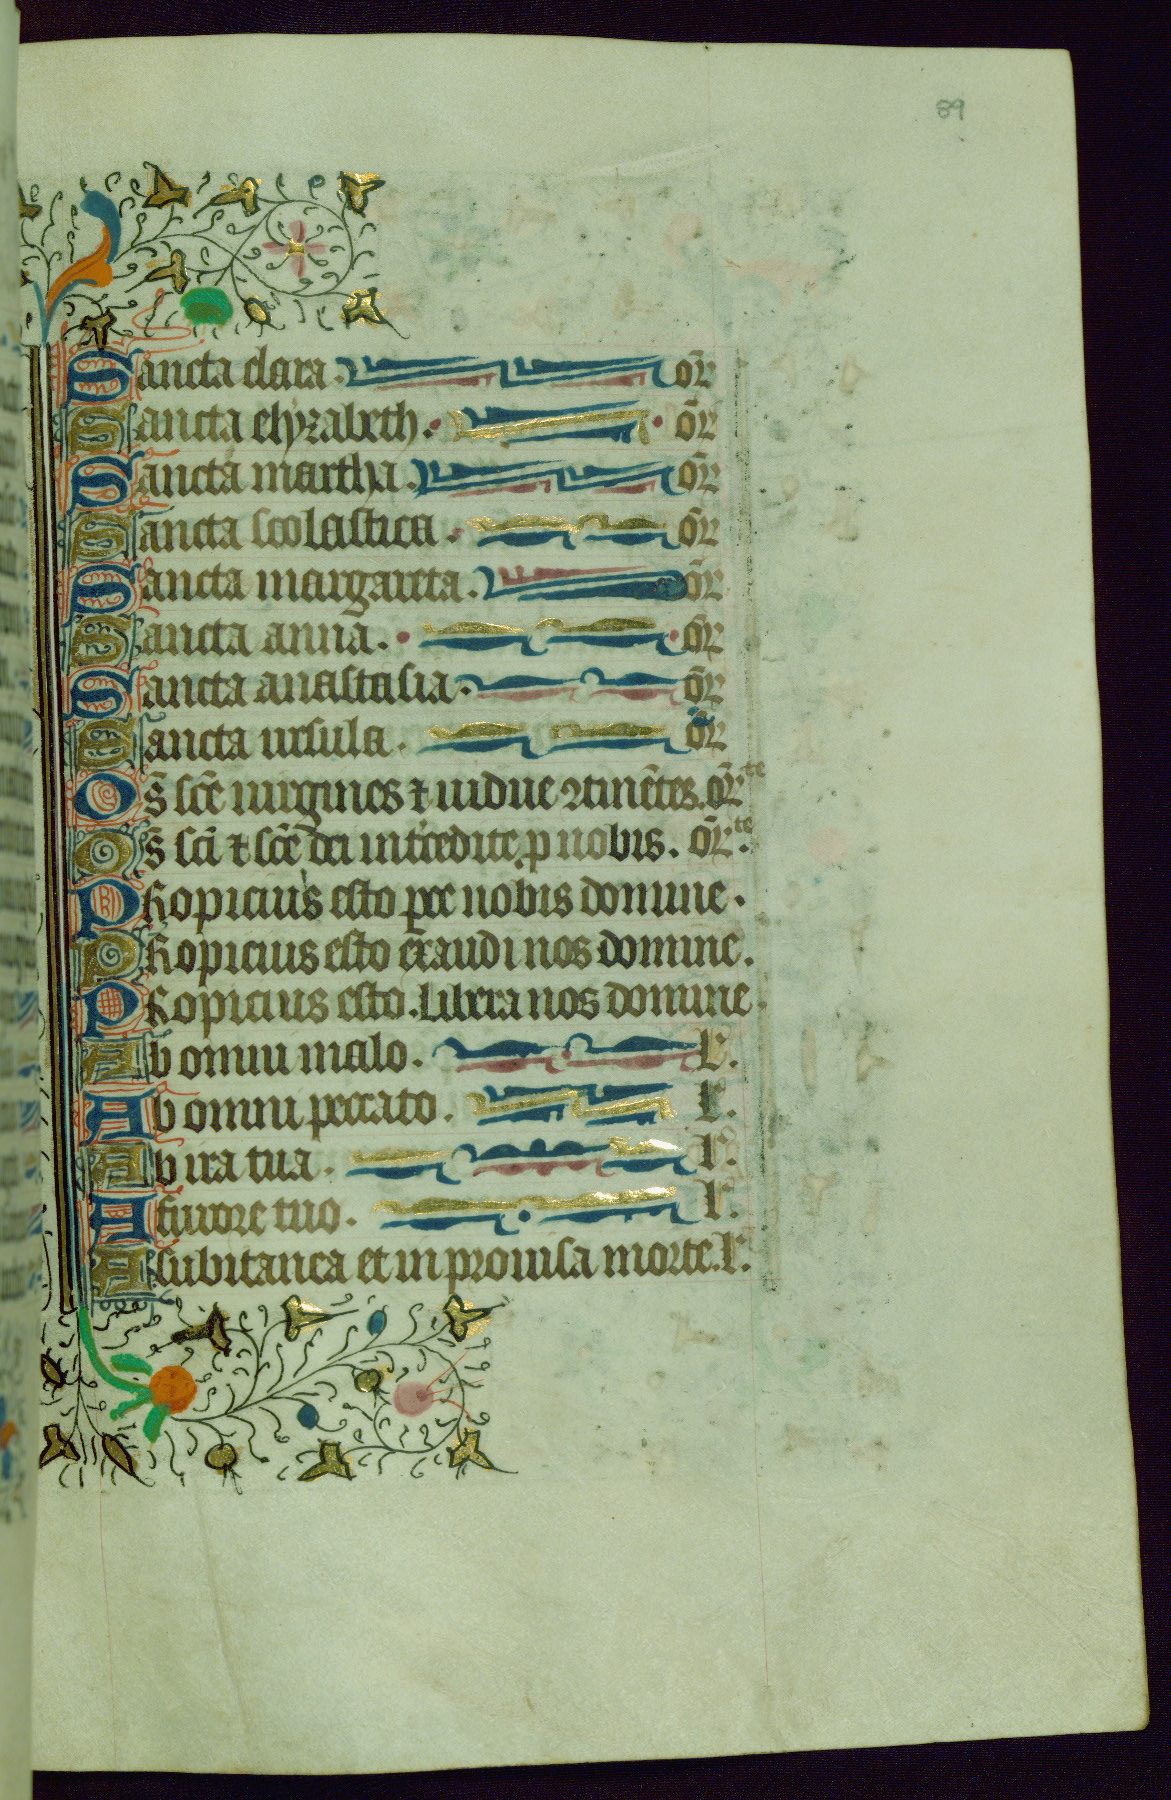 89
Sancta clara. or
Sancta elyzabeth. or
Sancta martha. or
Sancta scolastica. or
Sancta margareta. or
Sancta anna. or
Sancta anastasia. or
Sancta ursula. or
Os̄ scē uirgines ⁊ uidue ꝯtinētes. or̄te
Os̄ sci ⁊ scē dei intˀcedite p nobis. or̄te.
Propicius esto pce nobis domine.
Propicius esto exaudi nos domine.
Propicius esto. libera nos domine.
Ab omni malo. l.
Ab omni peccato. l.
Ab ira tua. l.
A furore tuo. l.
A subitanea et in prouisa morte. l.